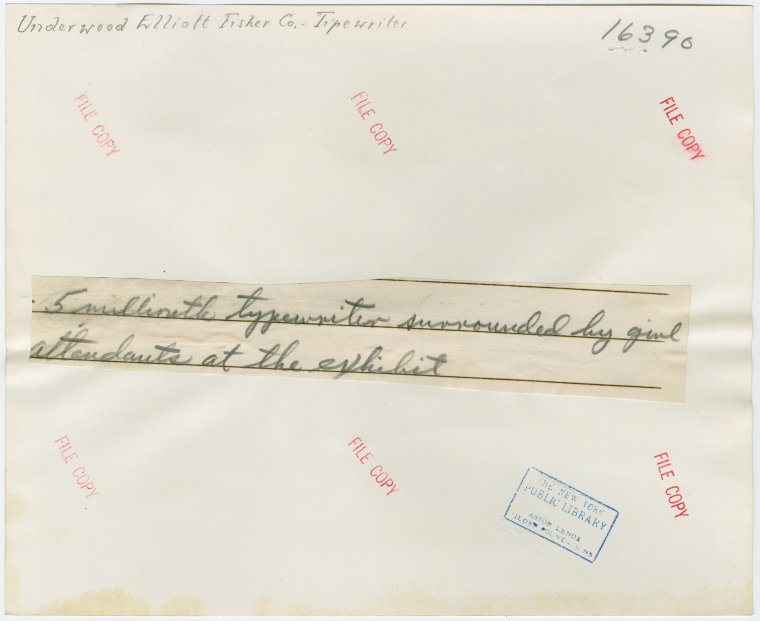 Underwood Elliott Fisher Co. - Tipewriter
16390
FILE COPY
FILE COPY
FILE COPY
- 5 millionth typewriter surrounded by girl
attendants at the exhibit
FILE COPY
FILE COPY
FILE COPY
THE NEW YORK
PUBLIC LIBRARY
ASTOR LENOX
TILDEN FOUNDATIONS